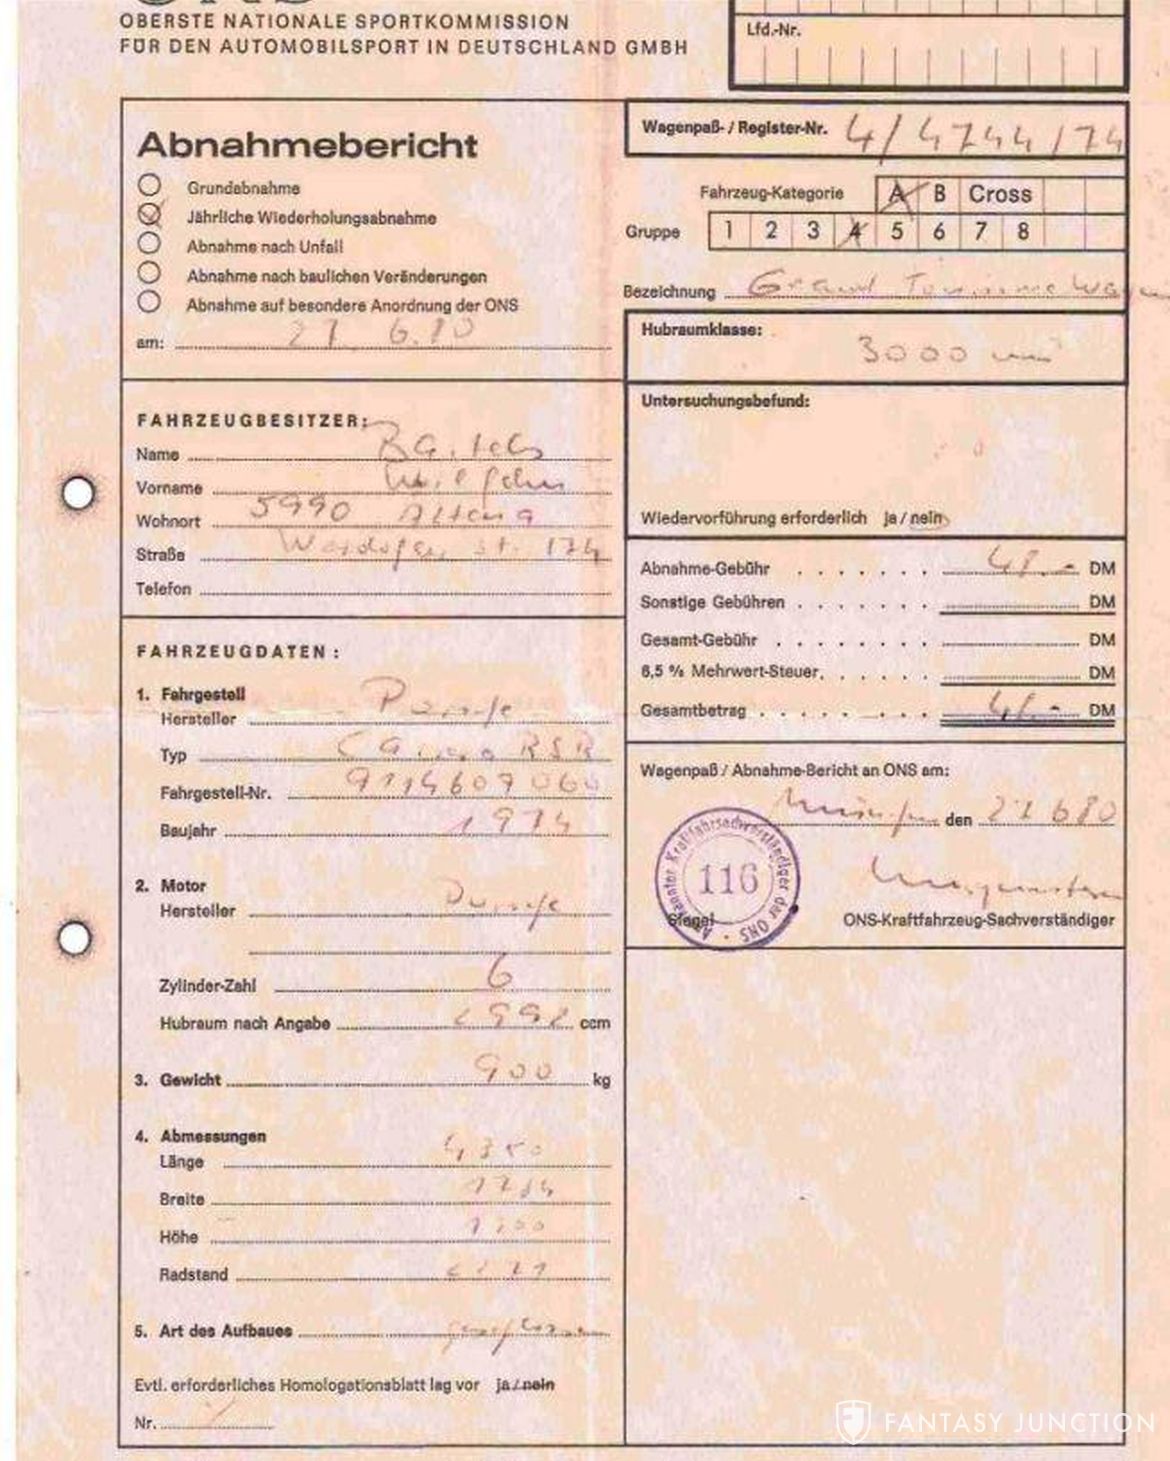 OBERSTE NATIONALE SPORTKOMMISSION
FÜR DEN AUTOMOBILSPORT IN DEUTSCHLAND GMBH
Lfd.-Nr.
Abnahmebericht
Grundabnahme
Jährliche Wiederholungsabnahme
Abnahme nach Unfall
Abnahme nach baulichen Veränderungen
Abnahme auf besondere Anordnung der ONS
am: 27 6.80
Wagenpaß- / Register-Nr. 4/4744/74
Fahrzeug-Kategorie A B Cross
Gruppe 1 2 3 4 5 6 7 8
Bezeichnung Grand Tourisme Wagen
Hubraumklasse:
3000
Untersuchungsbefund:
Wiedervorführung erforderlich ja / nein
FAHRZEUGBESITZER:
Name Bartels
Vorname
Wohnort 5990 Altena
Straße 174
Telefon
Abnahme-Gebühr DM
Sonstige Gebühren DM
Gesamt-Gebühr DM
6,5 % Mehrwert-Steuer. DM
Gesamtbetrag DM
FAHRZEUGDATEN:
1. Fahrgestell
Hersteller Porsche
Typ Carrera RSR
Fahrgestell-Nr. 9114609060
Baujahr 1974
2. Motor
Hersteller Porsche
Zylinder-Zahl 6
Hubraum nach Angabe 2992 ccm
3. Gewicht 900 kg
4. Abmessungen
Länge
Breite
Höhe
Radstand
5. Art des Aufbaues geschlossen
Evtl. erforderliches Homologationsblatt lag vor ja / nein
Nr.
Wagenpaß / Abnahme-Bericht an ONS am:
München den 27 6 80
Anerkannter Kraftfahrsachverständiger der ONS
116
Siegel
ONS-Kraftfahrzeug-Sachverständiger
FANTASY JUNCTION